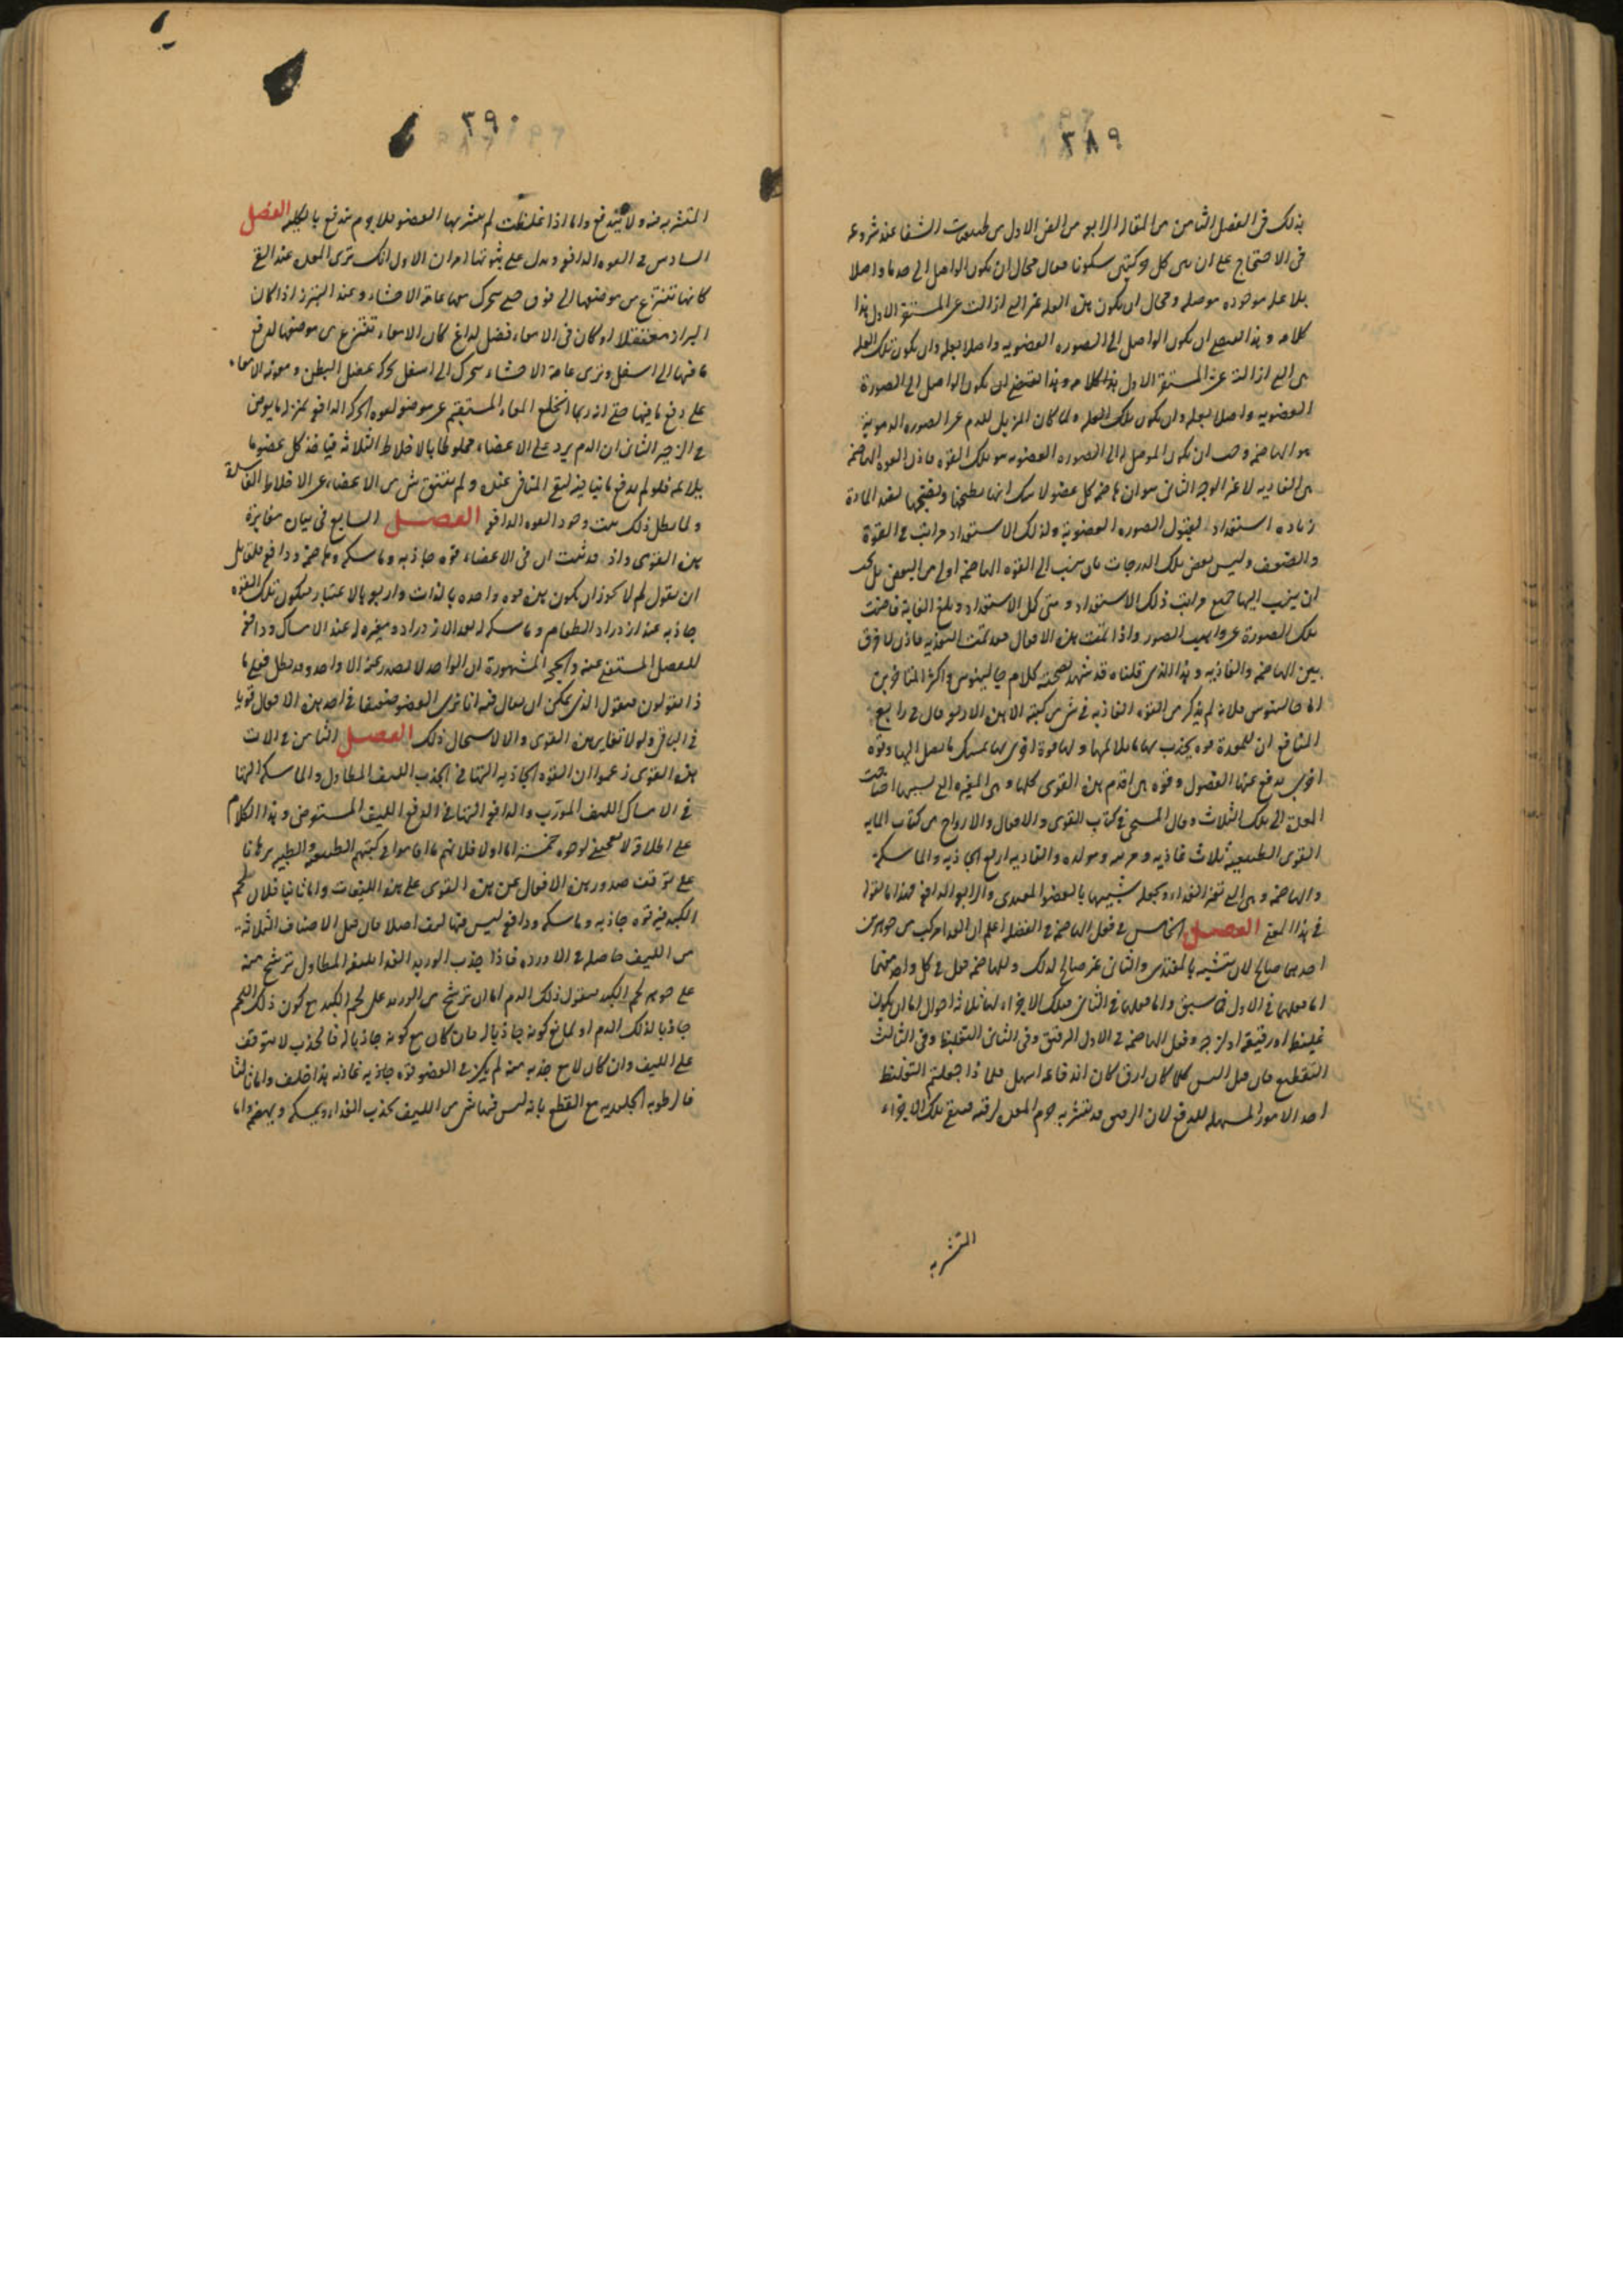 ٣٨٩
بذلك فى الفصل الثامن من المقالة الرابعة من الفن الاول من طبيعيات الشفا عند شروعه
فى الاحتجاج على ان بين كل حركتين سكونا فقال محال ان يكون الواصل الى حد ما واصلا
بلا علة موجوده موصله ومحال ان يكون هذه العله غير التى ازالت عن المستقر الاول هذا
كلامه وهذا يقتضى ان يكون الواصل الى الصوره العضويه واصلا بعلة وان يكون تلك العله
هى التى ازالته عن المستقر الاول هذا كلامه وهذا يقتضى ان يكون الواصل الى الصورة
العضويه واصلا بعله وان يكون تلك العله ولما كان المزيل للدم عن الصوره الدمويه
هو الهاضمه وجب ان يكون الموصل له الى الصوره العضويه هو تلك القوه فاذن القوه الهاضمه
هى الغاذيه لا غير الوجه الثانى هو ان هاضمه كل عضو لا شك انها بطبخها ونضجها يفيد المادة
زياده استعداد لقبول الصوره العضوية ولذلك الاستعداد مراتب فى القوة
والضعف وليس بعض تلك الدرجات بان ينسب الى القوه الهاضمه اولى من البعض بل يجب
ان ينسب اليها جميع مراتب ذلك الاستعداد ومتى كمل الاستعداد وبلغ الغاية فاضت
تلك الصورة عن واهب الصور واذا تمت هذه الافعال فقد تمت التغذيه فاذن لا فرق
بين الهاضمه والغاذيه وهذا الذى قلناه قد شهد بصحته كلام جالينوس واكثر المتاخرين
اما جالينوس فلانه لم يذكر من القوه الغاذيه فى شى من كتبه الا هذه الاربع وقال فى رابع
المنافع ان للمعدة قوه يجذب بها ما يلائمها ولها قوة اخرى بها يمسك ما يصل اليها وقوه
اخرى يدفع عنها الفضول وقوه هى اقدم هذه القوى كلها وهى المغيره التى بسببها احتاجت
المعدة الى تلك الثلاث وقال المسيحى فى كتاب القوى والافعال والارواح من كتاب المايه
القوى الطبيعيه ثلاث غاذيه ومربيه ومولده والغاذيه اربع الجاذبه والماسكه
والهاضمه وهى التى تغير الغذاء وتجعله شبيها بالعضو المغتذى والرابع الدافعه فهذا ما نقول
فى هذا المعنى الفصل الخامس فى فعل الهاضمه فى الفضله اعلم ان الغذا مركب من جوهرين
احدهما صالح لان يتشبه بالمغتذى والثانى غير صالح لذلك وللهاضمه فعل فى كل واحد منهما
اما فعلها فى الاول فما سبق واما فعلها فى الثانى فتلك الاجزاء لها ثلاثه احوال اما ان يكون
غليظه او رقيقة او لزجه وفعل الهاضمه فى الاول الترقيق وفى الثانى التغليظ وفى الثالث
التقطيع فان قيل اليس كلما كان ارق كان اندفاعه اسهل فلماذا جعلتم التغليظ
احد الامور المسهله للدفع لان الرقيق قد يتشربه جرم المعده لرقته فتبقى تلك الاجزاء
المتشربه
٣٩٠
المتشربه فيه ولا يندفع واما اذا غلظت لم يتشربها العضو فلا جرم يندفع بالكليه الفصل
السادس فى القوه الدافعه ويدل على ثبوتها امران الاول انك ترى المعده عند القى
كانها تنتزع من موضعها الى فوق حتى يتحرك معها عامة الاحشاء وعند التبرز اذا كان
البراز معتقلا او كان فى الامعاء فضل لذاع كان الامعاء تنتزع من موضعها لدفع
ما فيها الى اسفل وترى عامة الاحشاء يتحرك الى اسفل بحركه عضل البطن ومعونة الامعاء
على دفع ما فيها حتى انه ربما انخلع المعاء المستقيم عن موضعه لقوه الحركه الدافعه بمنزله ما يعرض
فى الزحير الثانى ان الدم يرد على الاعضاء مخلوطا بالاخلاط الثلاثه فياخذ كل عضو ما
يلائمه فلو لم يدفع ما ينافيه لبقى المنافى عنده ولم ينتق شى من الاعضاء عن الاخلاط الفاسدة
ولما بطل ذلك ثبت وجود القوه الدافعه الفصل السابع فى بيان مغايرة
هذه القوى واذ قد ثبت ان فى الاعضاء قوه جاذبه وماسكه وهاضمه ودافعه فلقائل
ان يقول لم لا يجوز ان يكون هذه قوه واحده بالذات واربع بالاعتبار فيكون تلك القوه
جاذبه عند ازدراد الطعام وماسكه له بعد الازدراد ومغيره له عند الامساك ودافعه
للفضل المستغنى عنه والحجه المشهورة ان الواحد لا يصدر عنه الا واحد وقد بطل فبقى ما
ذا تقولون فيقول الذى يمكن ان يقال فيه انا نرى العضو ضعيفا فى احد هذه الافعال قويا
فى الباقى ولولا تغاير هذه القوى والا لاستحال ذلك الفصل الثامن فى الات
هذه القوى زعموا ان القوه الجاذبه التها فى الجذب الليف المطاول والماسكه التها
فى الامساك الليف المورب والدافعه التها فى الدفع الليف المستعرض وهذا الكلام
على اطلاقه لا يصح لوجوه خمسة اما اولا فلانهم ما اقاموا فى كتبهم الطبيعيه والطبيه برهانا
على توقف صدور هذه الافعال عن هذه القوى على هذه الليفات واما ثانيا فلان لحم
الكبد فيه قوه جاذبه وماسكه ودافعه ليس فيها ليف اصلا فان قيل الاصناف الثلاثه
من الليف حاصله فى الاورده فاذا جذب الوريد الغذا بليفه المطاول ترشح منه
على جوهر لحم الكبد فيقول ذلك الدم اما ان ترشح من الوريد على لحم الكبد مع كون ذلك اللحم
جاذبا لذلك الدم او لا مع كونه جاذبا له فان كان مع كونه جاذبا له فالجذب لا يتوقف
على الليف وان كان لا مع جذبه منه لم يكن فى العضو قوه جاذبه غاذيه هذا خلف واما ثالثا
فالرطوبه الجليديه مع القطع بانه ليس فيها شى من الليف يجذب الغذاء ويمسكه ويهضمه واما